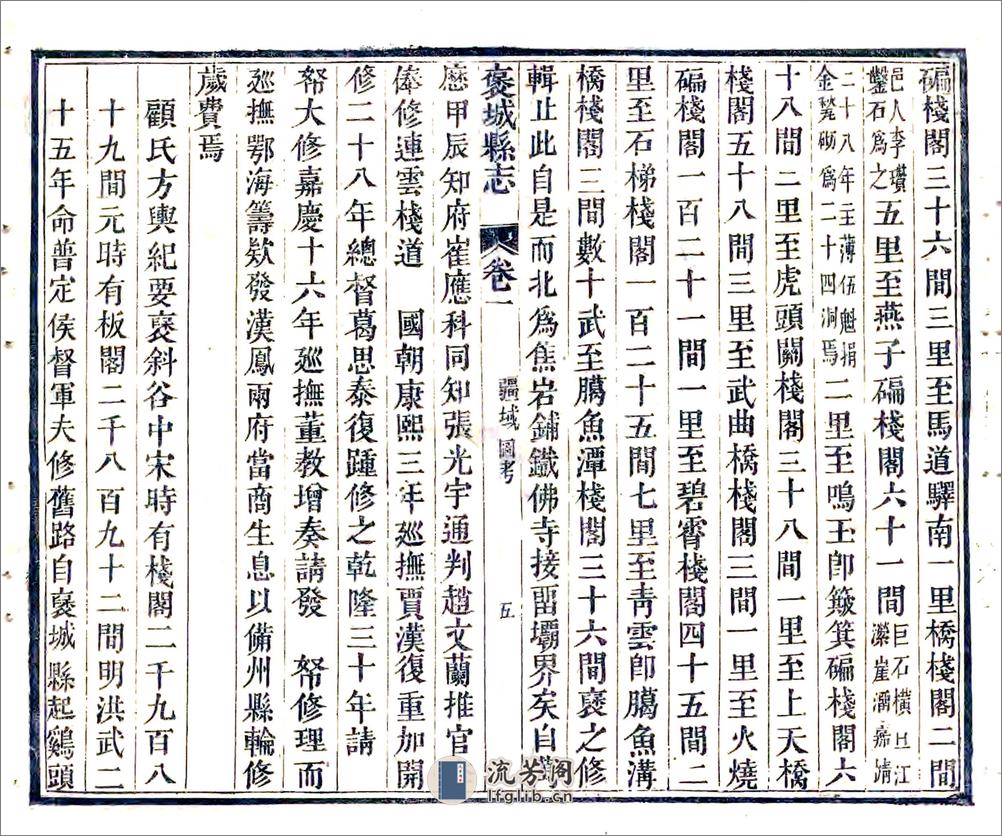 碥棧閣三十六間三里至馬道驛南一里橋棧閣二間
邑人李瓚
鑿石爲之五里至燕子碥棧閣六十一間巨石橫亘江
瀠崖濔嘉靖
二十八年主薄伍魁捐
金甃砌爲二十四洞焉二里至鳴玉卽簸箕碥棧閣六
十八間二里至虎頭關棧閣三十八間一里至上天橋
棧閣五十八間三里至武曲橋棧閣三間一里至火燒
碥棧閣一百二十一間一里至碧霄棧閣四十五間二
里至石梯棧閣一百二十五間七里至青雲卽臈魚溝
橋棧閣三間數十武至臈魚潭棧閣三十六間褒之修
輯止此自是而北爲焦岩鋪鐵佛寺接畱壩界矣自
褒城縣志 卷一 疆域圖考 五
歷甲辰知府崔應科同知張光宇通判趙文蘭推官
俸修連雲棧道 國朝康熙三年廵撫賈漢復重加開
修二十八年總督葛思泰復踵修之乾隆三十年請
帑大修嘉慶十六年廵撫董教增奏請發 帑修理而
廵撫鄂海籌欵發漢鳳兩府當商生息以備州縣輪修
歲費焉
顧氏方輿紀要褒斜谷中宋時有棧閣二千九百八
十九間元時有板閣二千八百九十二間明洪武二
十五年命普定侯督軍夫修舊路自褒城縣起雞頭
流芳閣
lfglib.cn